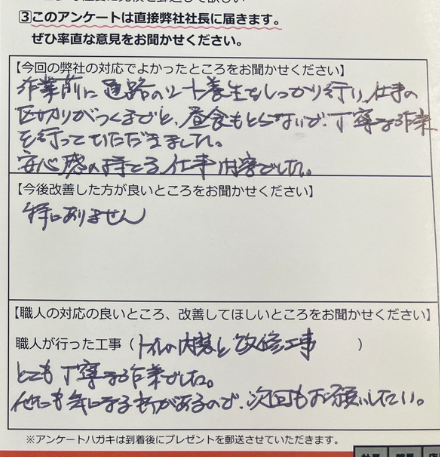 ③このアンケートは直接弊社社長に届きます。
ぜひ率直な意見をお聞かせください。
【今回の弊社の対応でよかったところをお聞かせください】
作業前に通路のシート養生をしっかり行い、仕事の
区切りがつくまでと、昼食もとらないで、丁寧な作業
を行っていただきました。
安心感の持てる仕事内容でした。
【今後改善した方が良いところをお聞かせください】
特にありません
【職人の対応の良いところ、改善してほしいところをお聞かせください】
職人が行った工事（トイレの内装と改修工事）
とても丁寧な作業でした。
他にも気になる所があるので、次回もお願いしたい。
※アンケートハガキは到着後にプレゼントを郵送させていただきます。